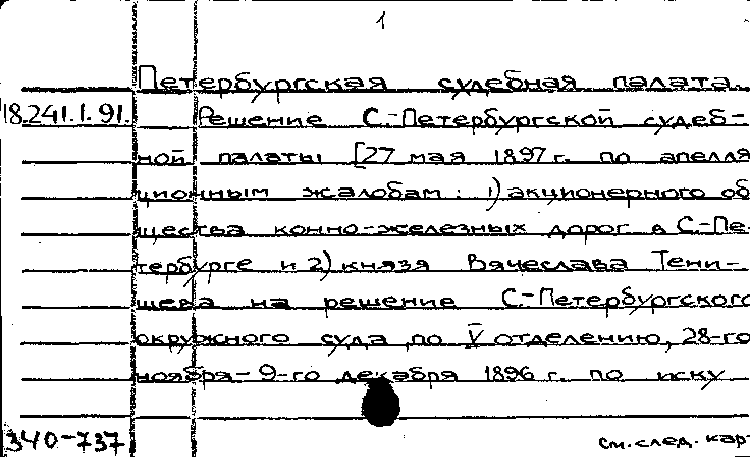 1
Петербургская судебная палата.
18.241.1.91. Решение С.-Петербургской судеб-
ной палаты [27 мая 1897 г. по апелля
ционным жалобам: 1) акционерного об
щества конно-железных дорог в С.-Пе-
тербурге и 2) князя Вячеслава Тени-
шева на решение С.-Петербургского
окружного суда по V отделению, 28-го
ноября - 9-го декабря 1896 г. по иску
340-737
см. след. кар